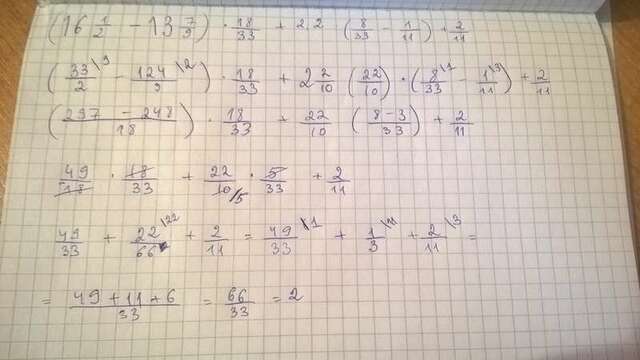 (16 1/2 - 13 7/9) · 18/33 + 2.2 (8/33 - 1/11) + 2/11
(33/2 \9 - 124/9 \2) · 18/33 + 2 2/10 (22/10) · (8/33 \1 - 1/11 \3) + 2/11
(297 - 248 / 18) · 18/33 + 22/10 (8-3 / 33) + 2/11
49/18 · 18/33 + 22/10 /5 · 5/33 + 2/11
49/33 + 22/66 \22 + 2/11 = 49/33 \1 + 1/3 \11 + 2/11 \3 =
= 49+11+6 / 33 = 66/33 = 2